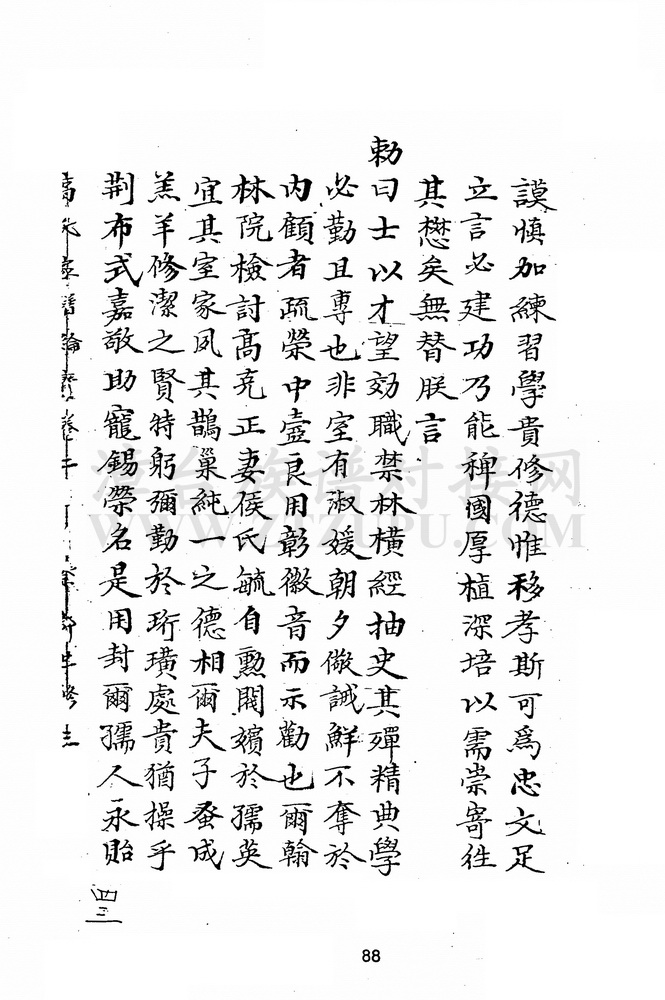 謨慎加練習學貴修德惟移孝斯可為忠文足
立言必建功乃能稗國厚植深培以需崇寄徃
其懋矣無替朕言
勅曰士以才望効職禁林橫經抽史其殫精典學
必勤且專也非室有淑媛朝夕儆誡鮮不奪於
內顧者疏榮中壼良用彰徽音而示勸也爾翰
林院檢討高克正妻侯氏毓自勳閥嬪於孺英
宜其室家夙其鵲巢純一之德相爾夫子蚤成
羔羊修潔之賢特躬彌勤於珩璜處貴猶操乎
荆布式嘉敬助寵錫榮名是用封爾孺人永貽
四三
88
WWW.ZTZUPU.COM